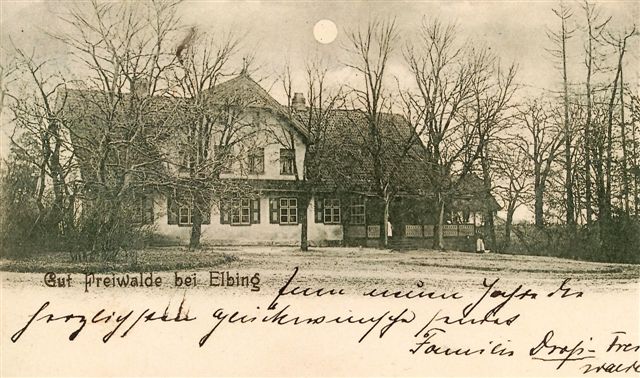 Gut Preiwalde bei Elbing
Zum neuen Jahre die
herzlichsten Glückwünsche sendet
Familie
walde